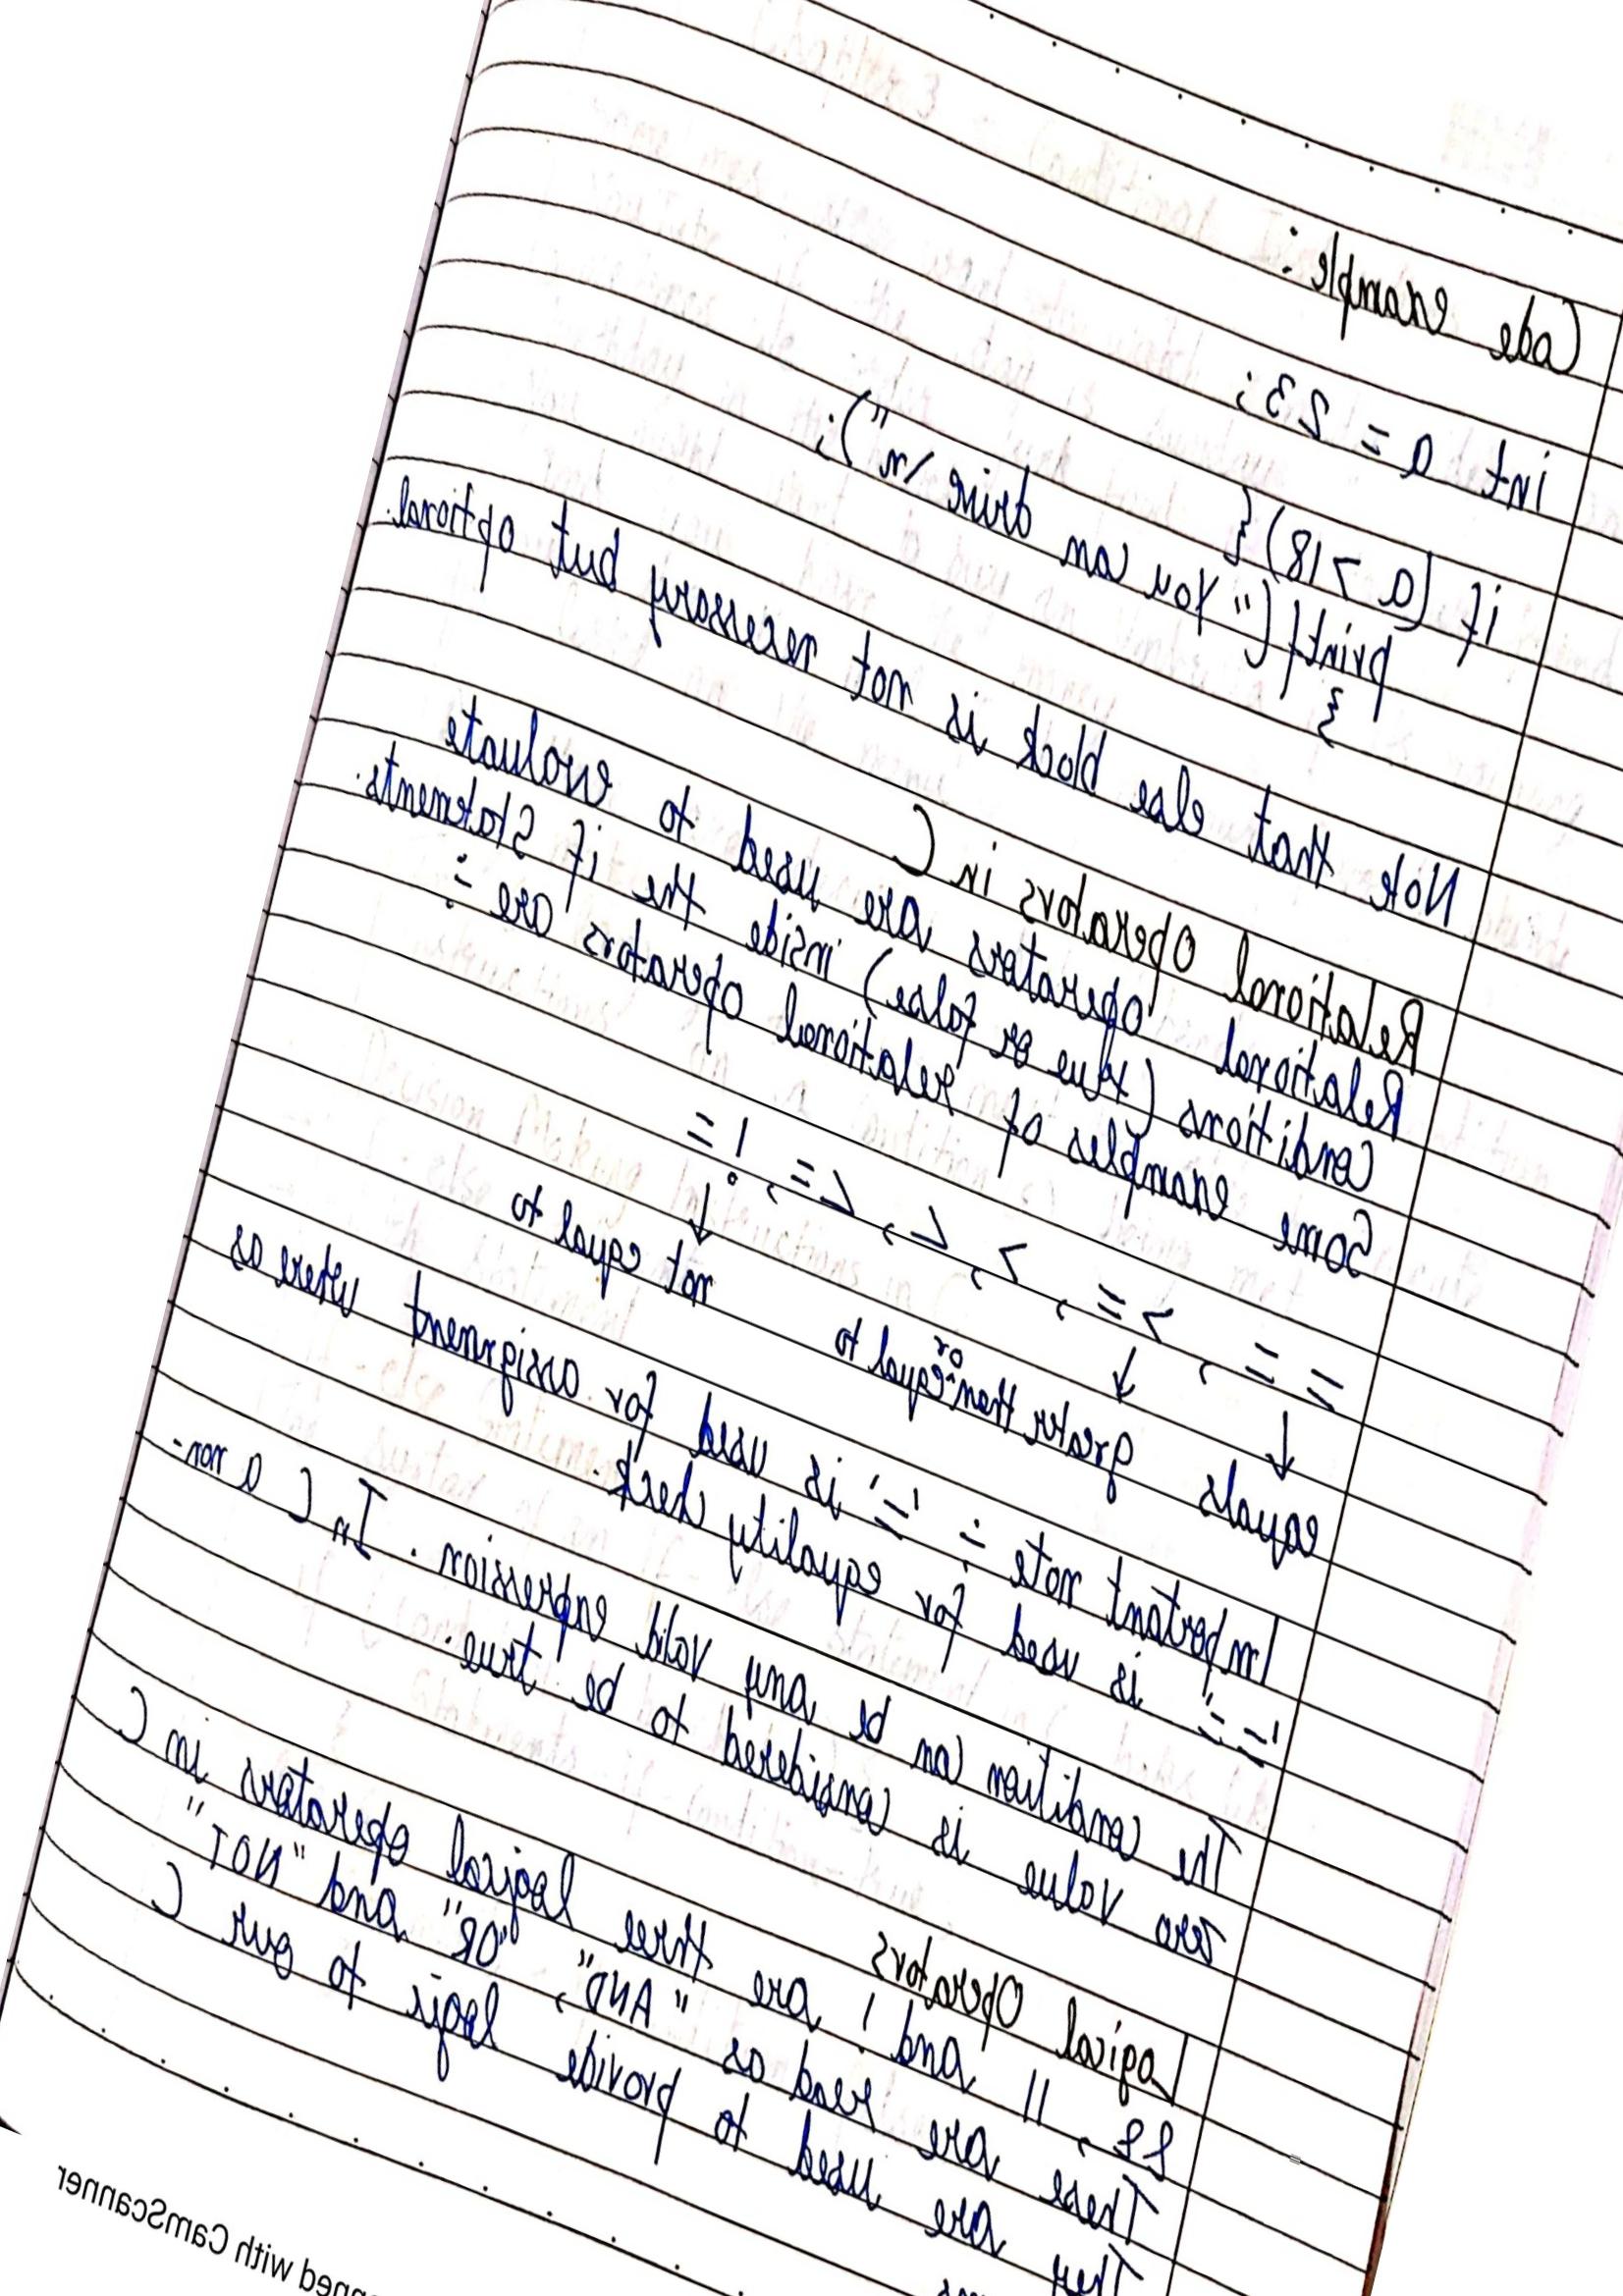 Code example :
int a = 23;
if (a > 18) {
printf("You can drive \n");
}
Note that else block is not necessary but optional.
Relational Operators in C
Relational operators are used to evaluate
conditions (true or false) inside the if statements.
Some examples of relational operators are :-
= = , > = , > , < , < = , ! =
equals greater than or equal to not equal to
Important note :- '=' is used for assignment where as
'= =' is used for equality check.
The condition can be any valid expression. In C a non-
zero value is considered to be true.
Logical Operators
&&, || and ! are three logical operators in C
These are read as "AND", "OR" and "NOT"
They are used to provide logic to our C
nned with CamScanner